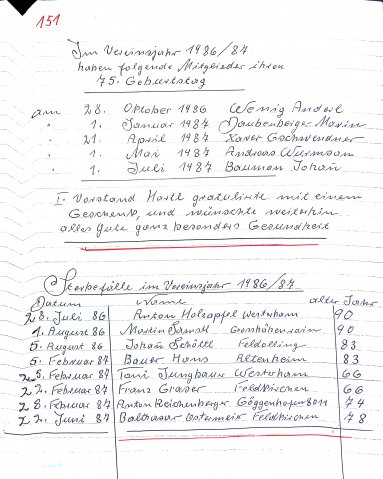 151
Im Vereinsjahr 1986/87
haben folgende Mitglieder ihren
75. Geburtstag
am 28. Oktober 1986 Wenig Anderl
" 1. Januar 1987 Daubenberger Marin
" 21. April 1987 Xaver Gschwendner
" 1. Mai 1987 Andreas Wurmsam
" 1. Juli 1987 Bauman Johan
I. Vorstand Hartl gratulierte mit einem
Geschenk, und wünschte weiterhin
alles Gute ganz besonders Gesundheit
Sterbefälle im Vereinsjahr 1986/87
Datum Name alter Jahre
23. Juli 86 Anton Holzapfel Westerham 90
1. August 86 Martin Grosshöhenrain 90
5. August 86 Johan Schöttl Feldolling 83
5. Februar 87 Bauer Hans Altenheim 83
25. Februar 87 Toni Jungbauer Westerham 66
22. Februar 87 Franz Graser Feldkirchen 66
28. Februar 87 Anton Reichenberger Göggenhofen 8011 74
22. Juni 87 Balthasar Ostermeir Feldkirchen 78